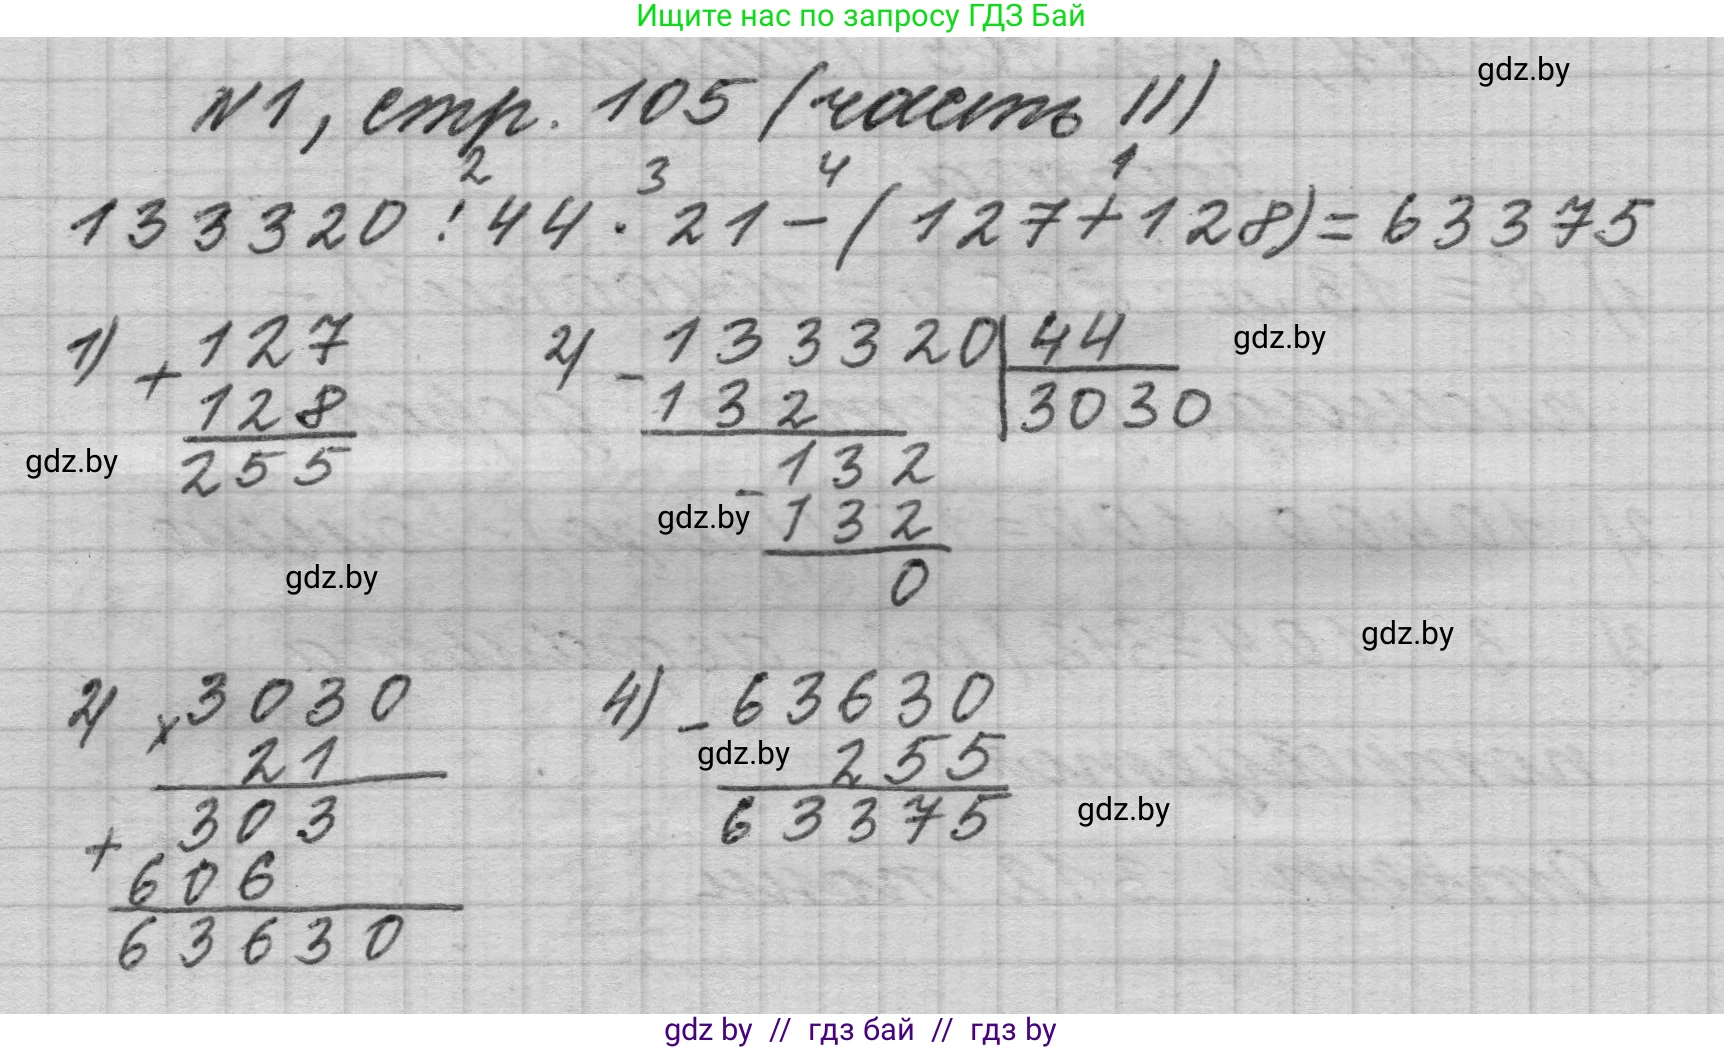 Ищите нас по запросу ГДЗ Бай
gdz.by
№1, стр. 105 (часть II)
2 3 4 1
133320 : 44 · 21 - (127+128) = 63375
1) + 127
128
255
2) - 133320 | 44
132
3030
- 132
132
0
gdz.by
gdz.by
gdz.by
gdz.by
gdz.by
2) × 3030
21
+ 303
606
63630
4) - 63630
255
63375
gdz.by
gdz.by
gdz by // гдз бай // гдз by